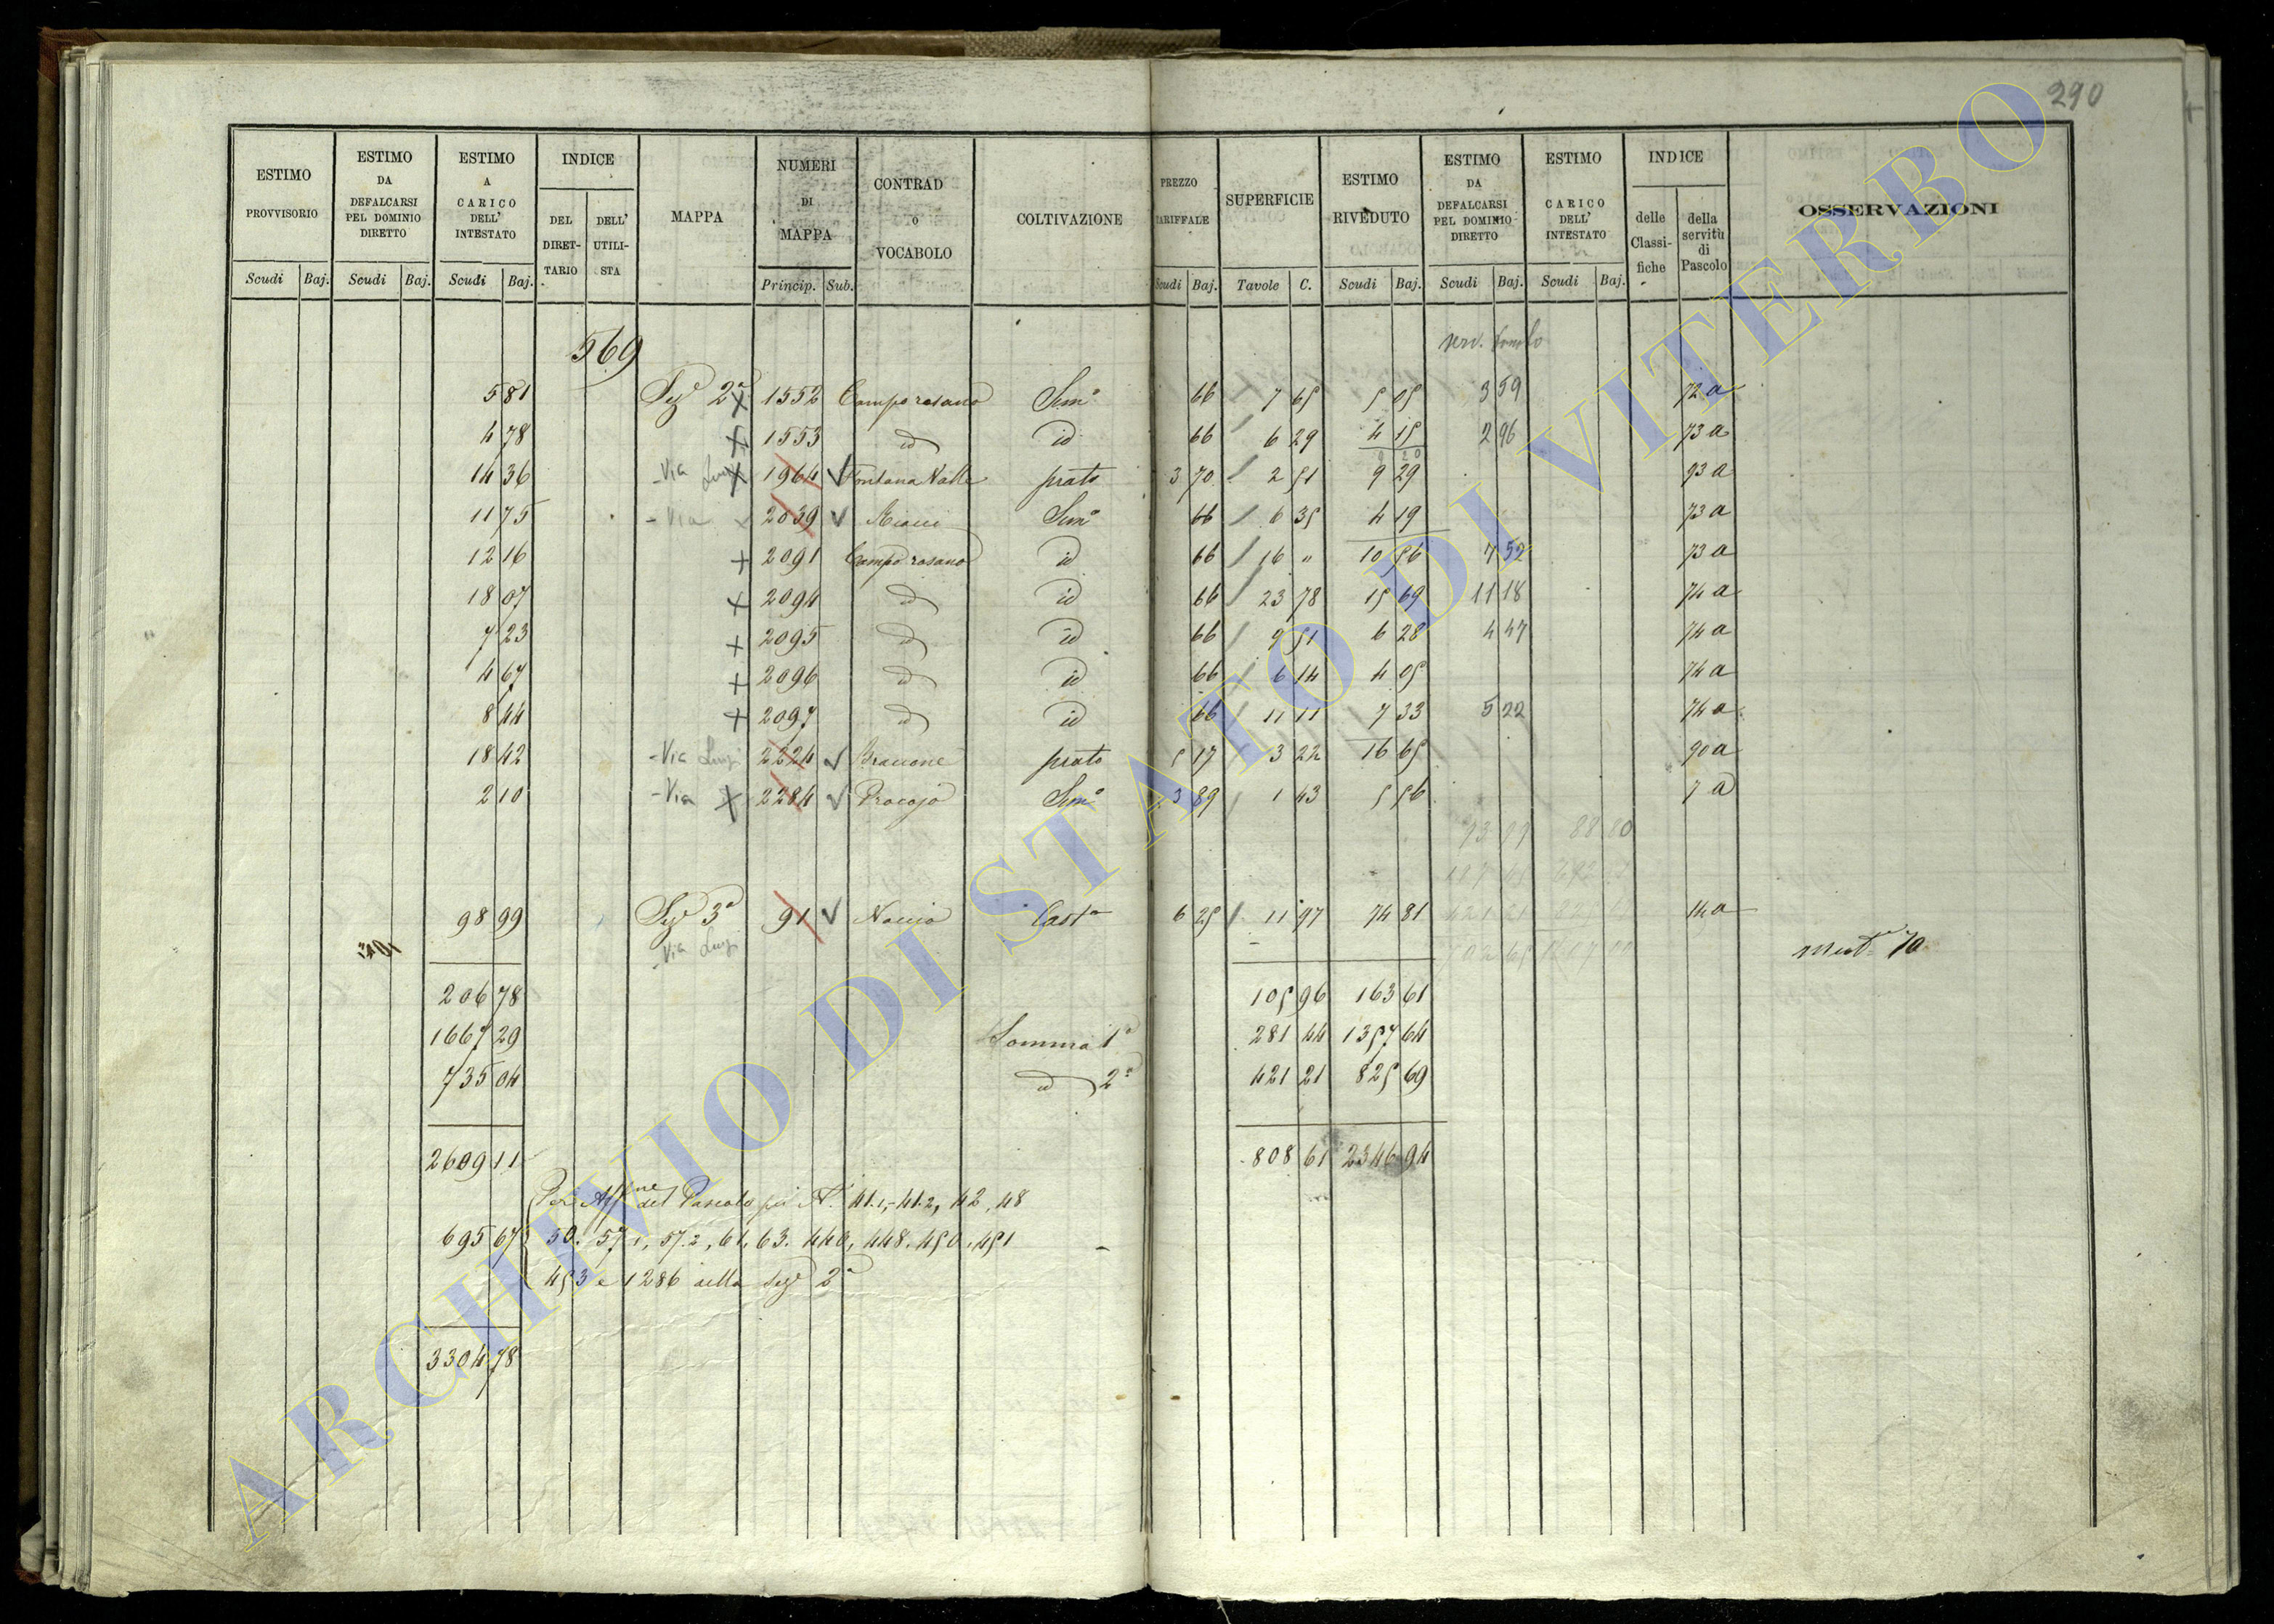 290
ESTIMO PROVVISORIO | ESTIMO DA DEFALCARSI PEL DOMINIO DIRETTO | ESTIMO A CARICO DELL' INTESTATO | INDICE DEL DIRETTARIO DELL' UTILISTA | MAPPA | NUMERI DI MAPPA | CONTRAD o VOCABOLO | COLTIVAZIONE | PREZZO TARIFFALE | SUPERFICIE | ESTIMO RIVEDUTO | ESTIMO DA DEFALCARSI PEL DOMINIO DIRETTO | ESTIMO CARICO DELL' INTESTATO | INDICE delle Classifiche della servitù di Pascolo | OSSERVAZIONI
Scudi Baj. Scudi Baj. Scudi Baj. Princip. Sub. Scudi Baj. Tavole C. Scudi Baj. Scudi Baj. Scudi Baj.
569
5 81 Sez.e 2a 1552 Campo rosano Sem.o 66 7 65 5 05 3 59 72 a
4 78 1553 id id 66 6 29 4 15 2 96 73 a
14 36 Via Luigi 1964 Fontana Valle prato 3 70 2 51 9 29 93 a
11 75 Via 2039 Sem.o 66 6 35 4 19 73 a
12 16 2091 Campo rosano id 66 16 " 10 56 7 52 73 a
18 07 2094 id id 66 23 78 15 69 11 18 74 a
7 23 2095 id id 66 9 51 6 28 4 47 74 a
4 67 2096 id id 66 6 14 4 05 74 a
8 44 2097 id id 66 11 11 7 33 5 22 74 a
18 42 Via Luigi 2224 Braccone prato 5 17 3 22 16 65 90 a
2 10 Via 2284 Procojo Sem.o 3 89 1 43 5 56 7 a
88 80
98 99 Sez.e 3a 91 Cast.o 6 25 11 97 74 81 14 a
Via Luigi
70
206 78 105 96 163 61
1667 29 Somma 1a 281 44 1357 64
735 04 id 2a 421 21 825 69
2609 11 808 61 2346 94
Per Aff.ne del Pascolo pei N.i 41.1, 41.2, 42, 48
695 67 50. 57.1, 57.2, 61, 63. 440, 448. 450. 451
453 e 1286 della Sez.e 2a
3304 78
ARCHIVIO DI STATO DI VITERBO